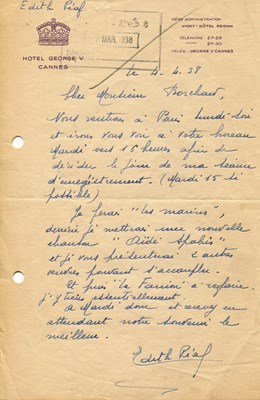 Edith Piaf
HOTEL GEORGE V
CANNES
MÊME ADMINISTRATION
VICHY : HÔTEL REGINA
TÉLÉPHONE 27-29
29-30
MAR. 1938
le 4.4.38
Cher Monsieur Borchard,
Nous rentrons à Paris lundi soir
et irons vous voir à votre bureau
Mardi vers 16 heures afin de
décider le jour de ma séance
d'enregistrement. (Mardi 15 si
possible)
Je ferai "les marins",
derrière je mettrai une nouvelle
chanson
et je vous présenterai 2 autres
œuvres pouvant s'accoupler.
Et puis à refaire.
J'y tiens essentiellement.
à Mardi donc et avez en
attendant notre souvenir le
meilleur.
Edith Piaf